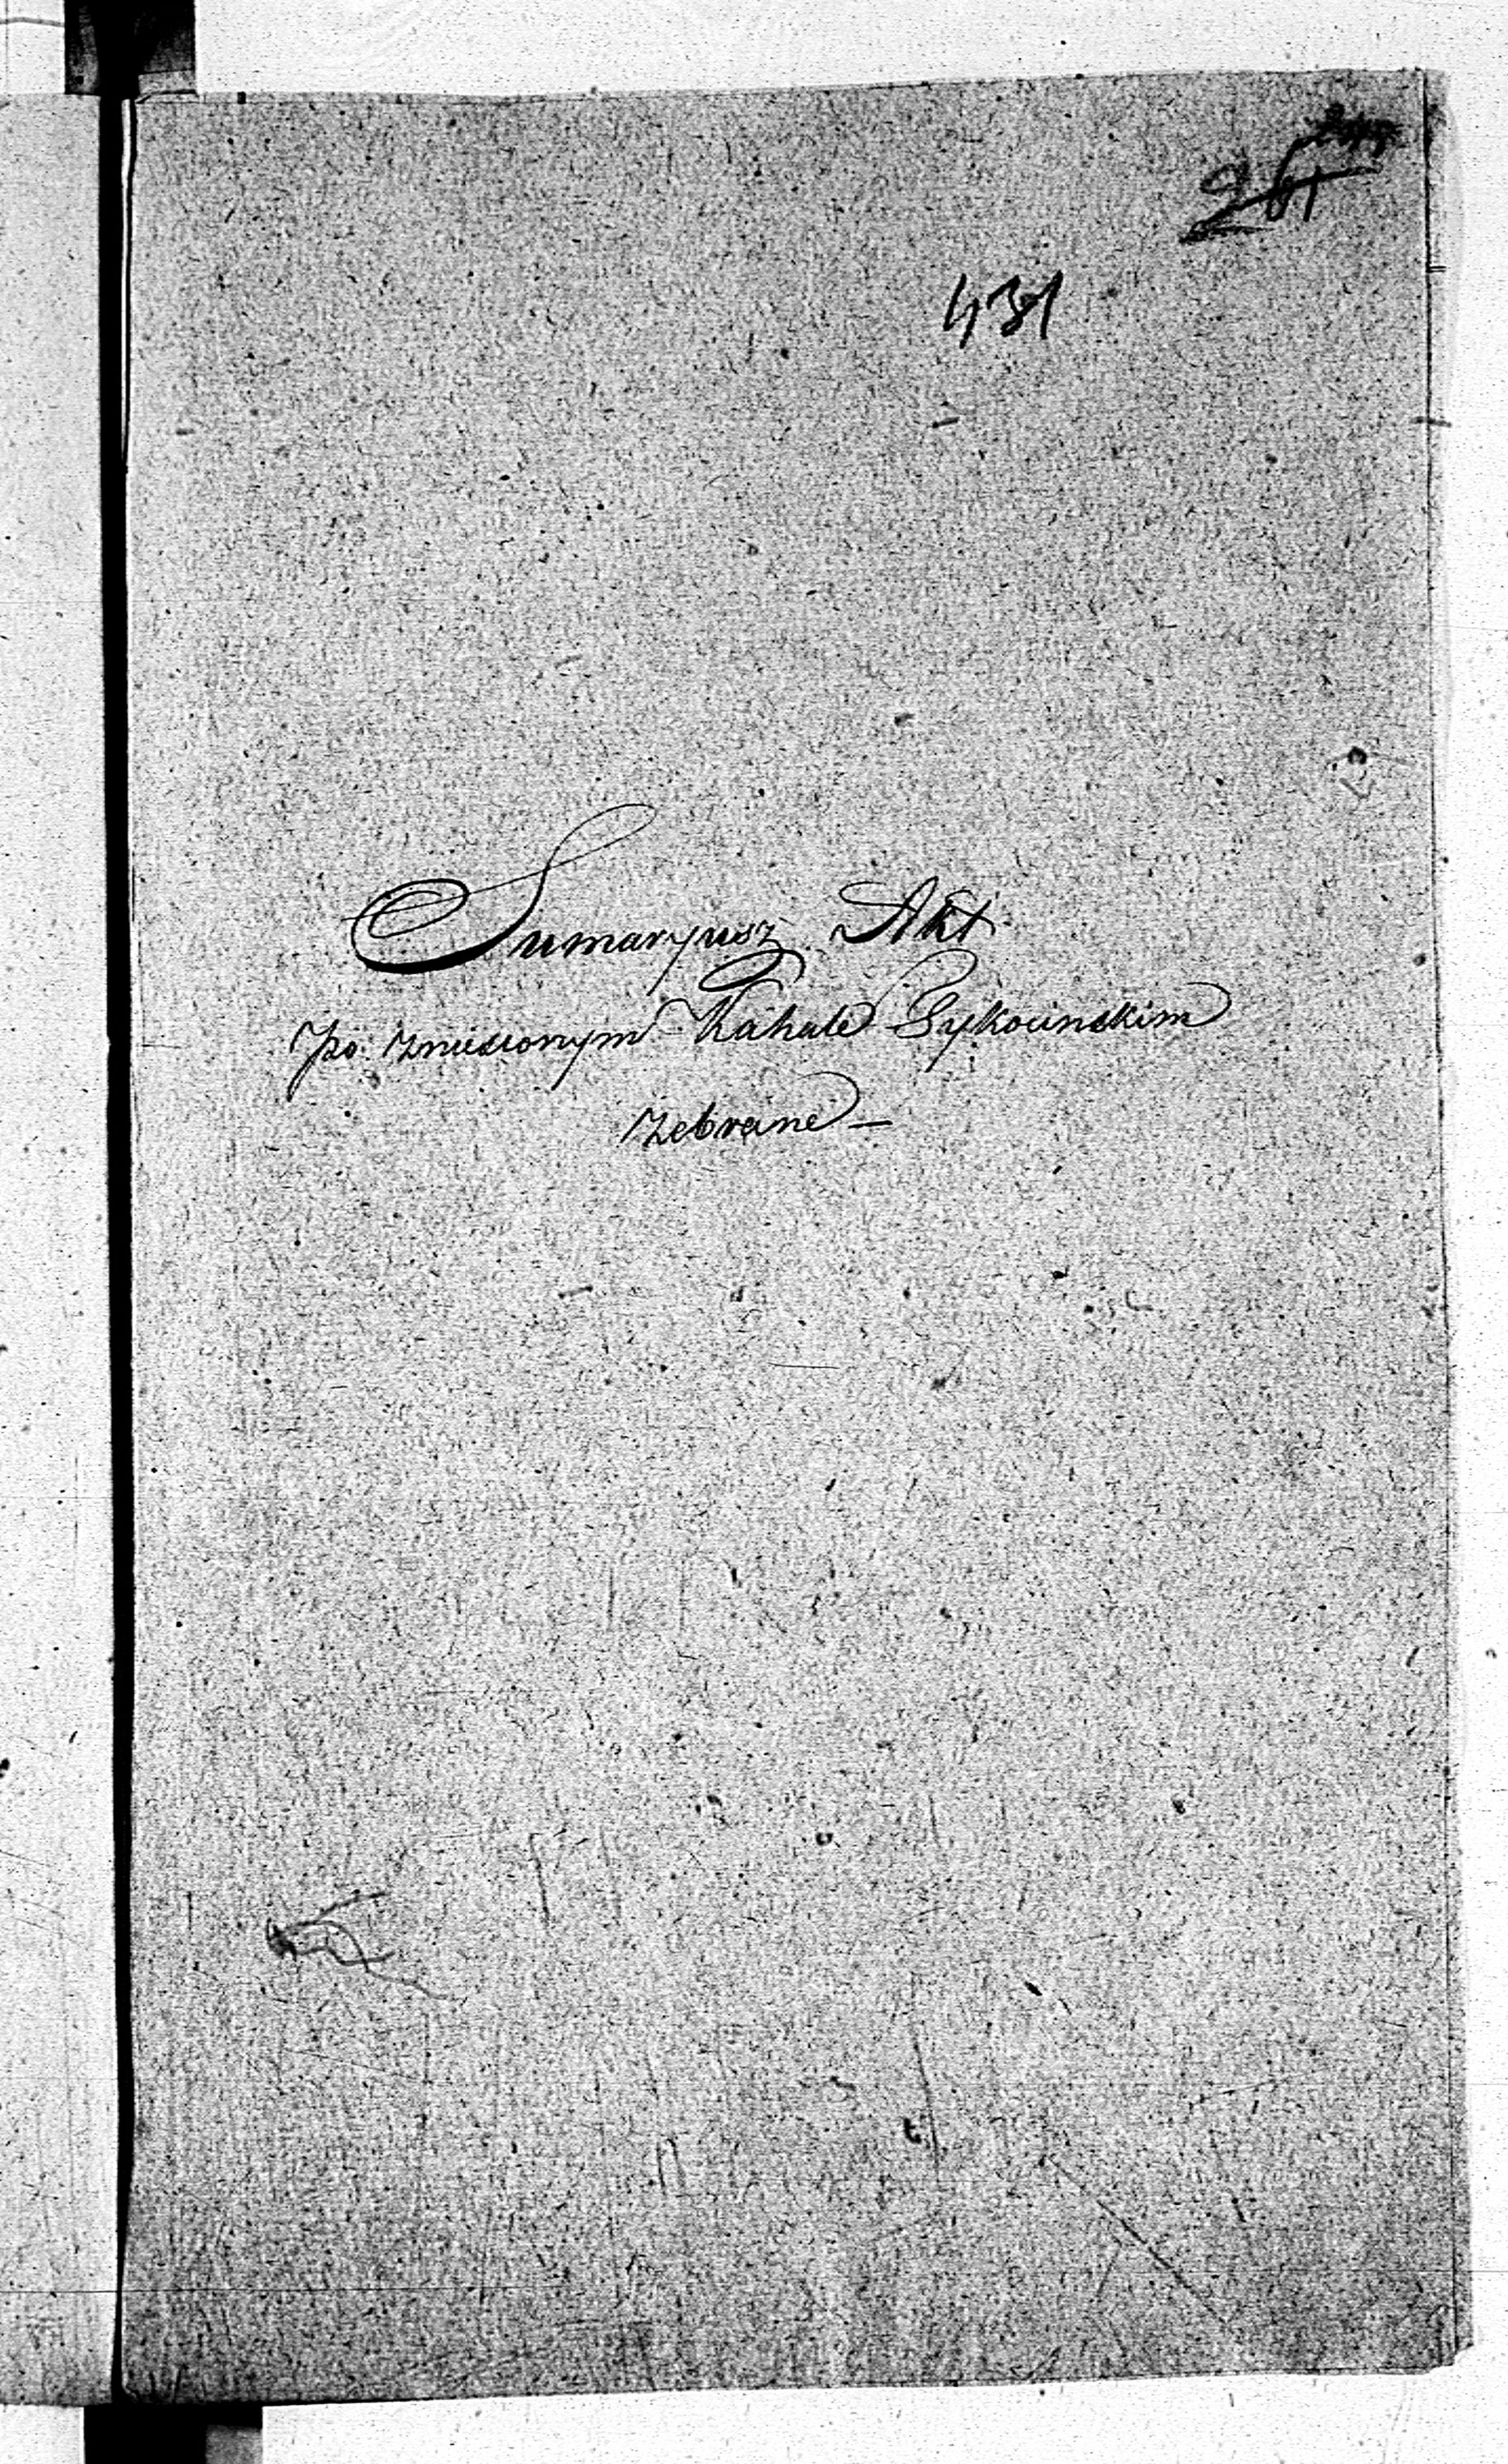 261
431
Sumaryusz Akt
Po zniesionym Kahale Tykocinskim
zebrane —